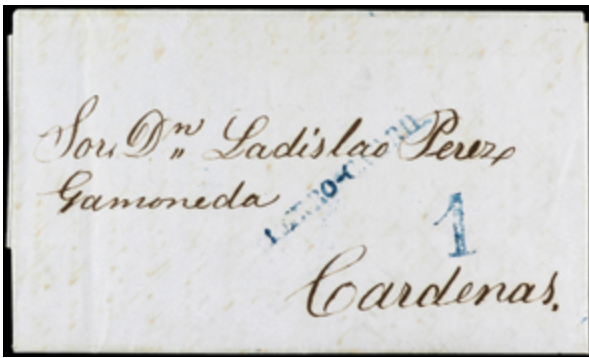 Sor. Dn Ladislao Perez
Gamoneda
FERRO-CARRIL
1
Cardenas.